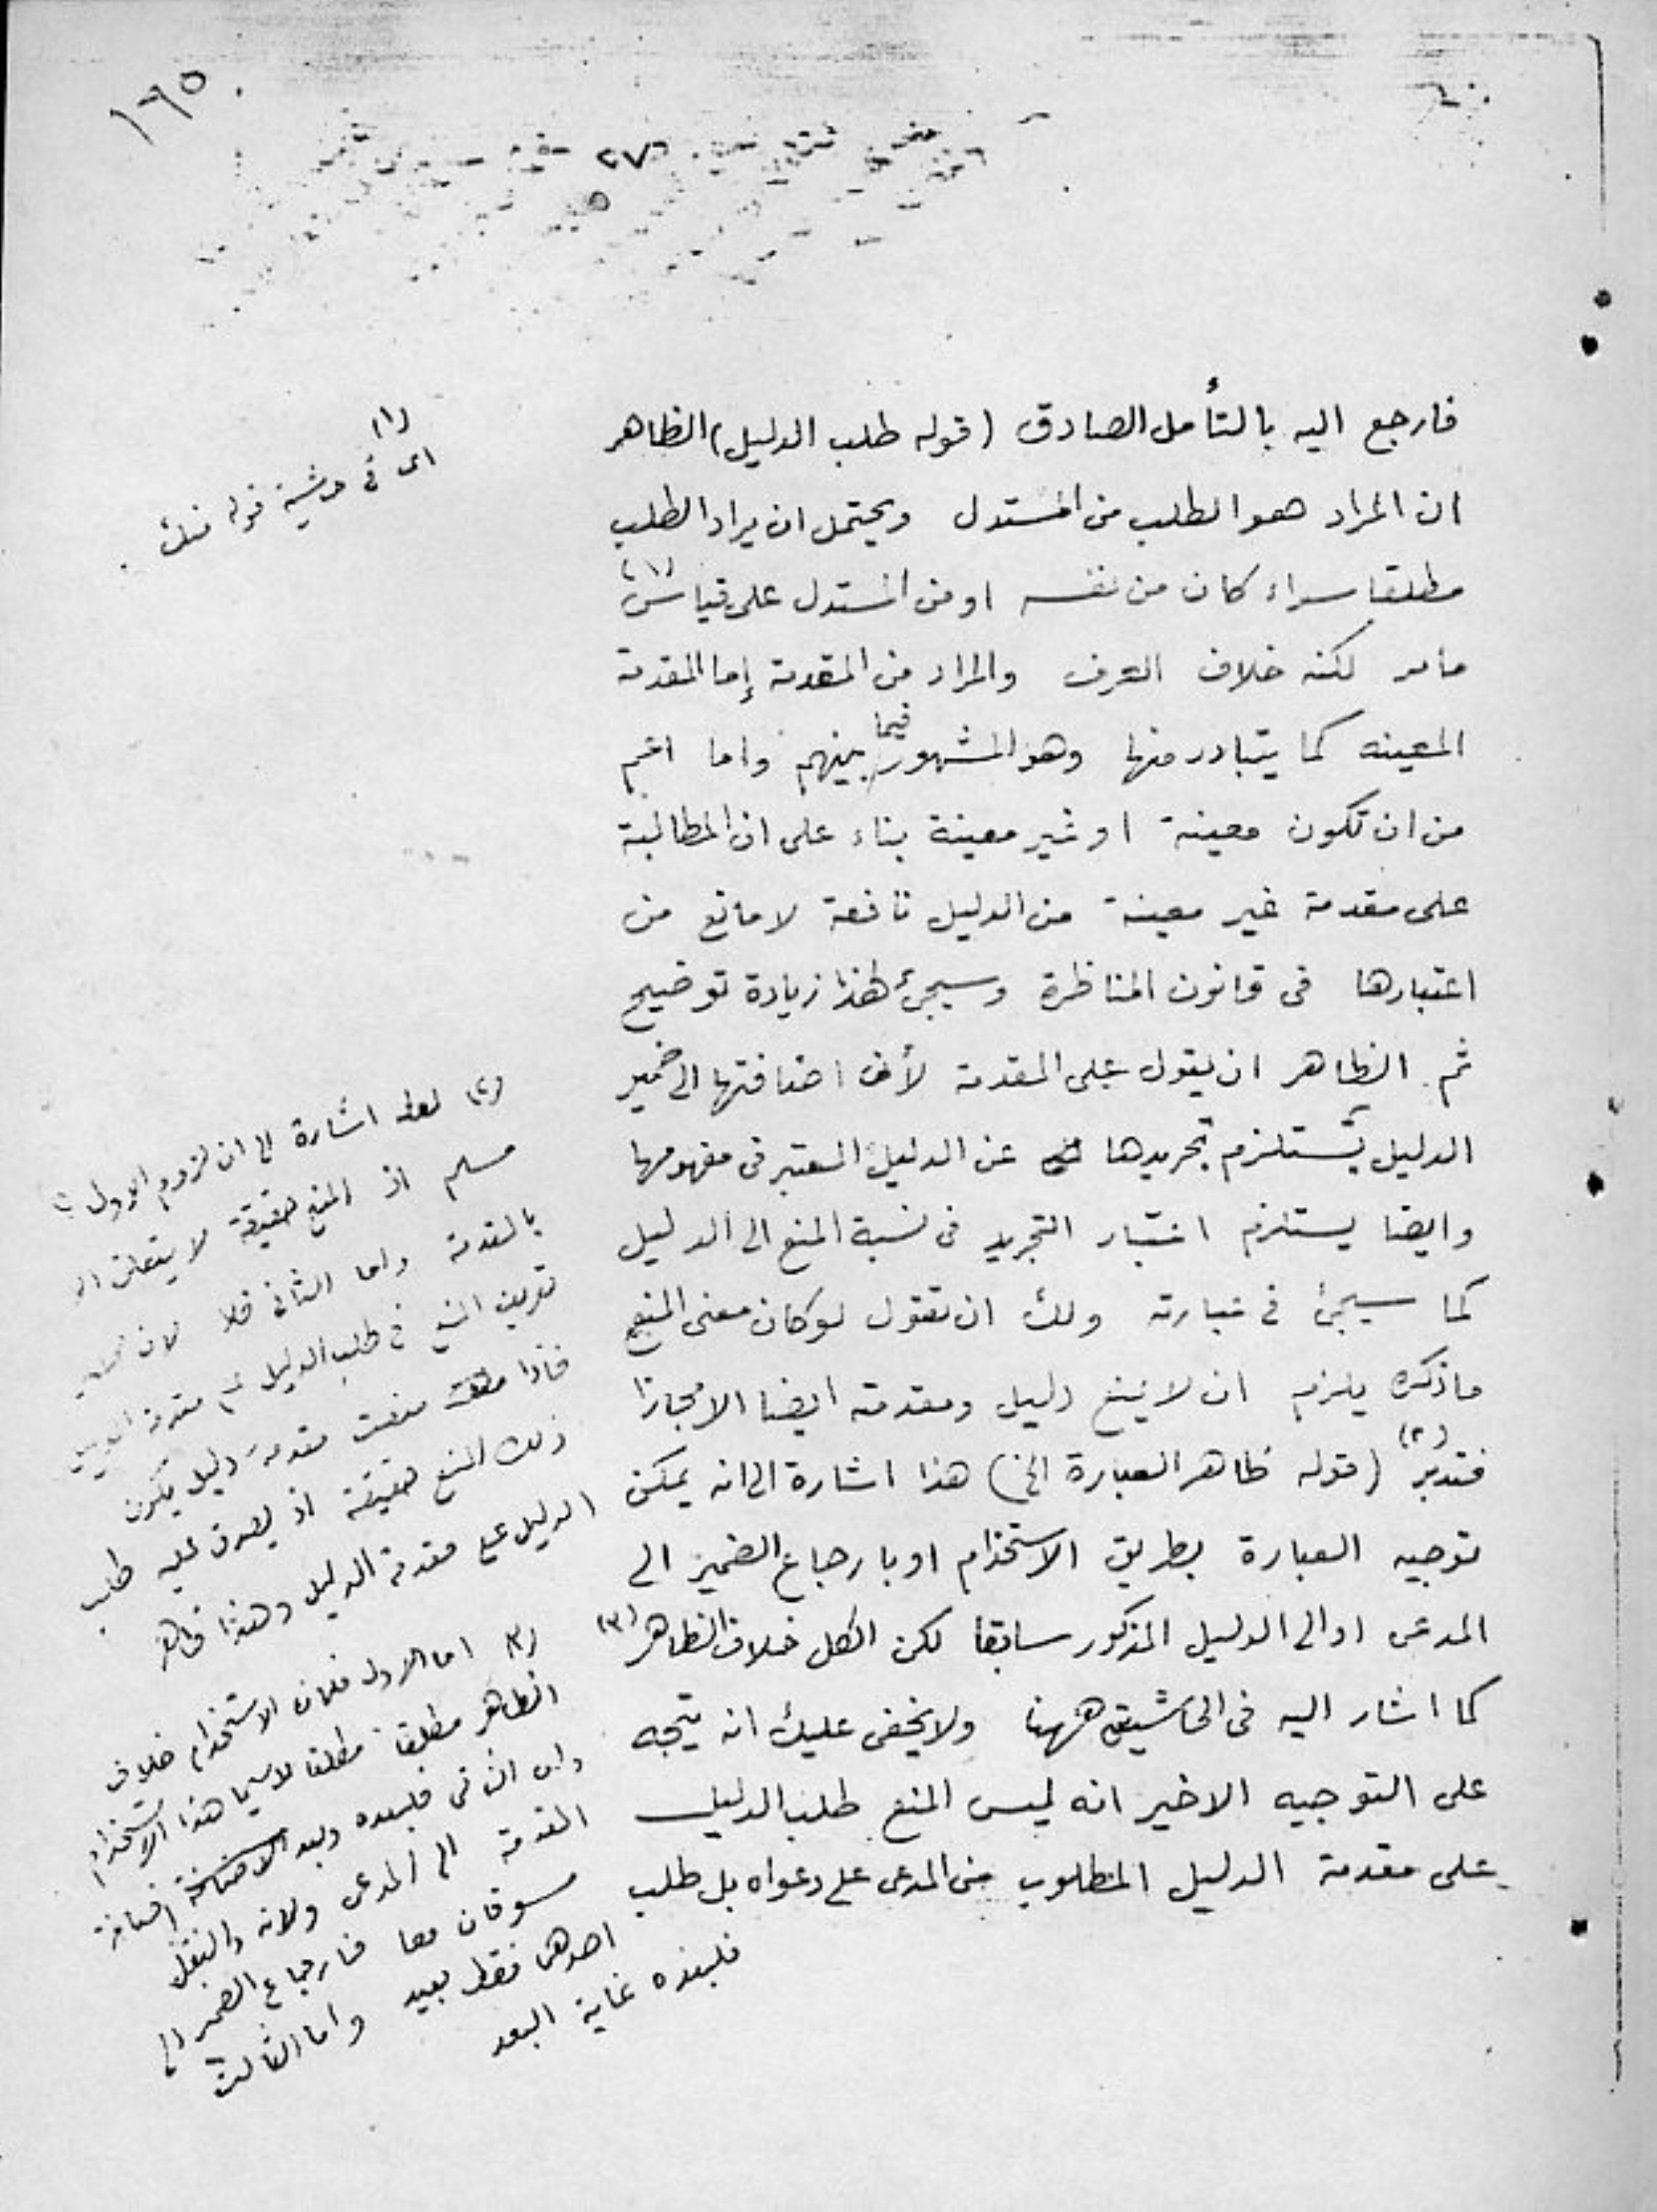 ١٦٥
٢٧٦
فارجع اليه بالتأمل الصادق (قوله طلب الدليل) الظاهر
ان المراد هو الطلب من المستدل ويحتمل ان يراد الطلب
مطلقا سواء كان من نفسه او من المستدل على قياس (١)
مامر لكنه خلاف العرف والمراد من المقدمة إما المقدمة
المعينه كما يتبادر منها وهو المشهور فيما بينهم واما اعم
من ان تكون معينة او غير معينة بناء على ان المطالبة
على مقدمة غير معينة من الدليل نافعة لا مانع من
اعتبارها فى قانون المناظرة وسيجئ لهذا زيادة توضيح
ثم الظاهر ان يقول على المقدمة لأن اضافتها الى ضمير
الدليل يستلزم تجريدها عن الدليل المعتبر فى مفهومها
وايضا يستلزم اعتبار التجريد فى نسبة المنع الى الدليل
كما سيجئ فى عبارته ولك ان تقول لو كان معنى المنع
ماذكره يلزم ان لا يمنع دليل ومقدمته ايضا الا مجازا
فتدبر (٢) (قوله ظاهر العبارة الخ) هذا اشارة الى انه يمكن
توجيه العبارة بطريق الاستخدام او بارجاع الضمير الى
المدعى او الى الدليل المذكور سابقا لكن الكل خلاف الظاهر (٣)
كما اشار اليه فى الحاشية ههنا ولا يخفى عليك انه يتجه
على التوجيه الاخير انه ليس المنع طلب الدليل
على مقدمة الدليل المطلوب من المدعى على دعواه بل طلب
(١)
اى فى حاشية قوله
(٢) لعله اشارة الى ان لزوم الاول
مسلم اذ المنع حقيقة لا يتعلق الا
بالمقدمة واما الثانى فلا لان
تعريف المنع طلب الدليل على مقدمة الدليل
فاذا منعت مقدمة دليل يكون
ذلك المنع حقيقة اذ يصدق عليه طلب
الدليل على مقدمة الدليل وهذا ظاهر
(٣) اما الاول فلان الاستخدام خلاف
الظاهر مطلقا مطلقا لاسيما هذا الاستخدام
واما الثانى فلبعده وبعد اضافة
المقدمة الى المدعى ولانه والنقل
مسوقان معا فارجاع الضمير الى
احدهما فقط بعيد واما الثالث
فلبعده غاية البعد